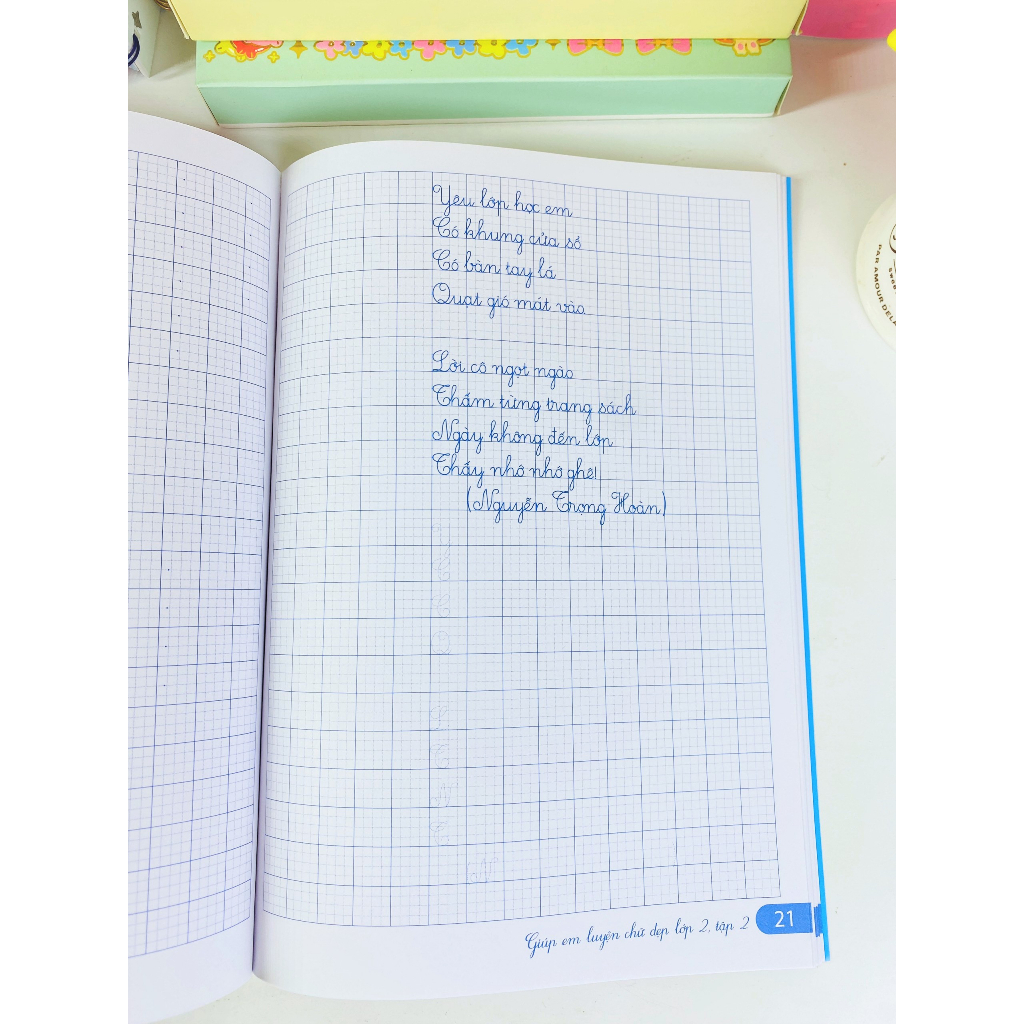 Yêu lớp học em
Có khung cửa sổ
Có bàn tay lá
Quạt gió mát vào
Lời cô ngọt ngào
Thấm từng trang sách
Ngày không đến lớp
Thấy nhớ nhớ ghê!
(Nguyễn Trọng Hoàn)
Giúp em luyện chữ đẹp lớp 2, tập 2
21
PAR AMOUR DELA